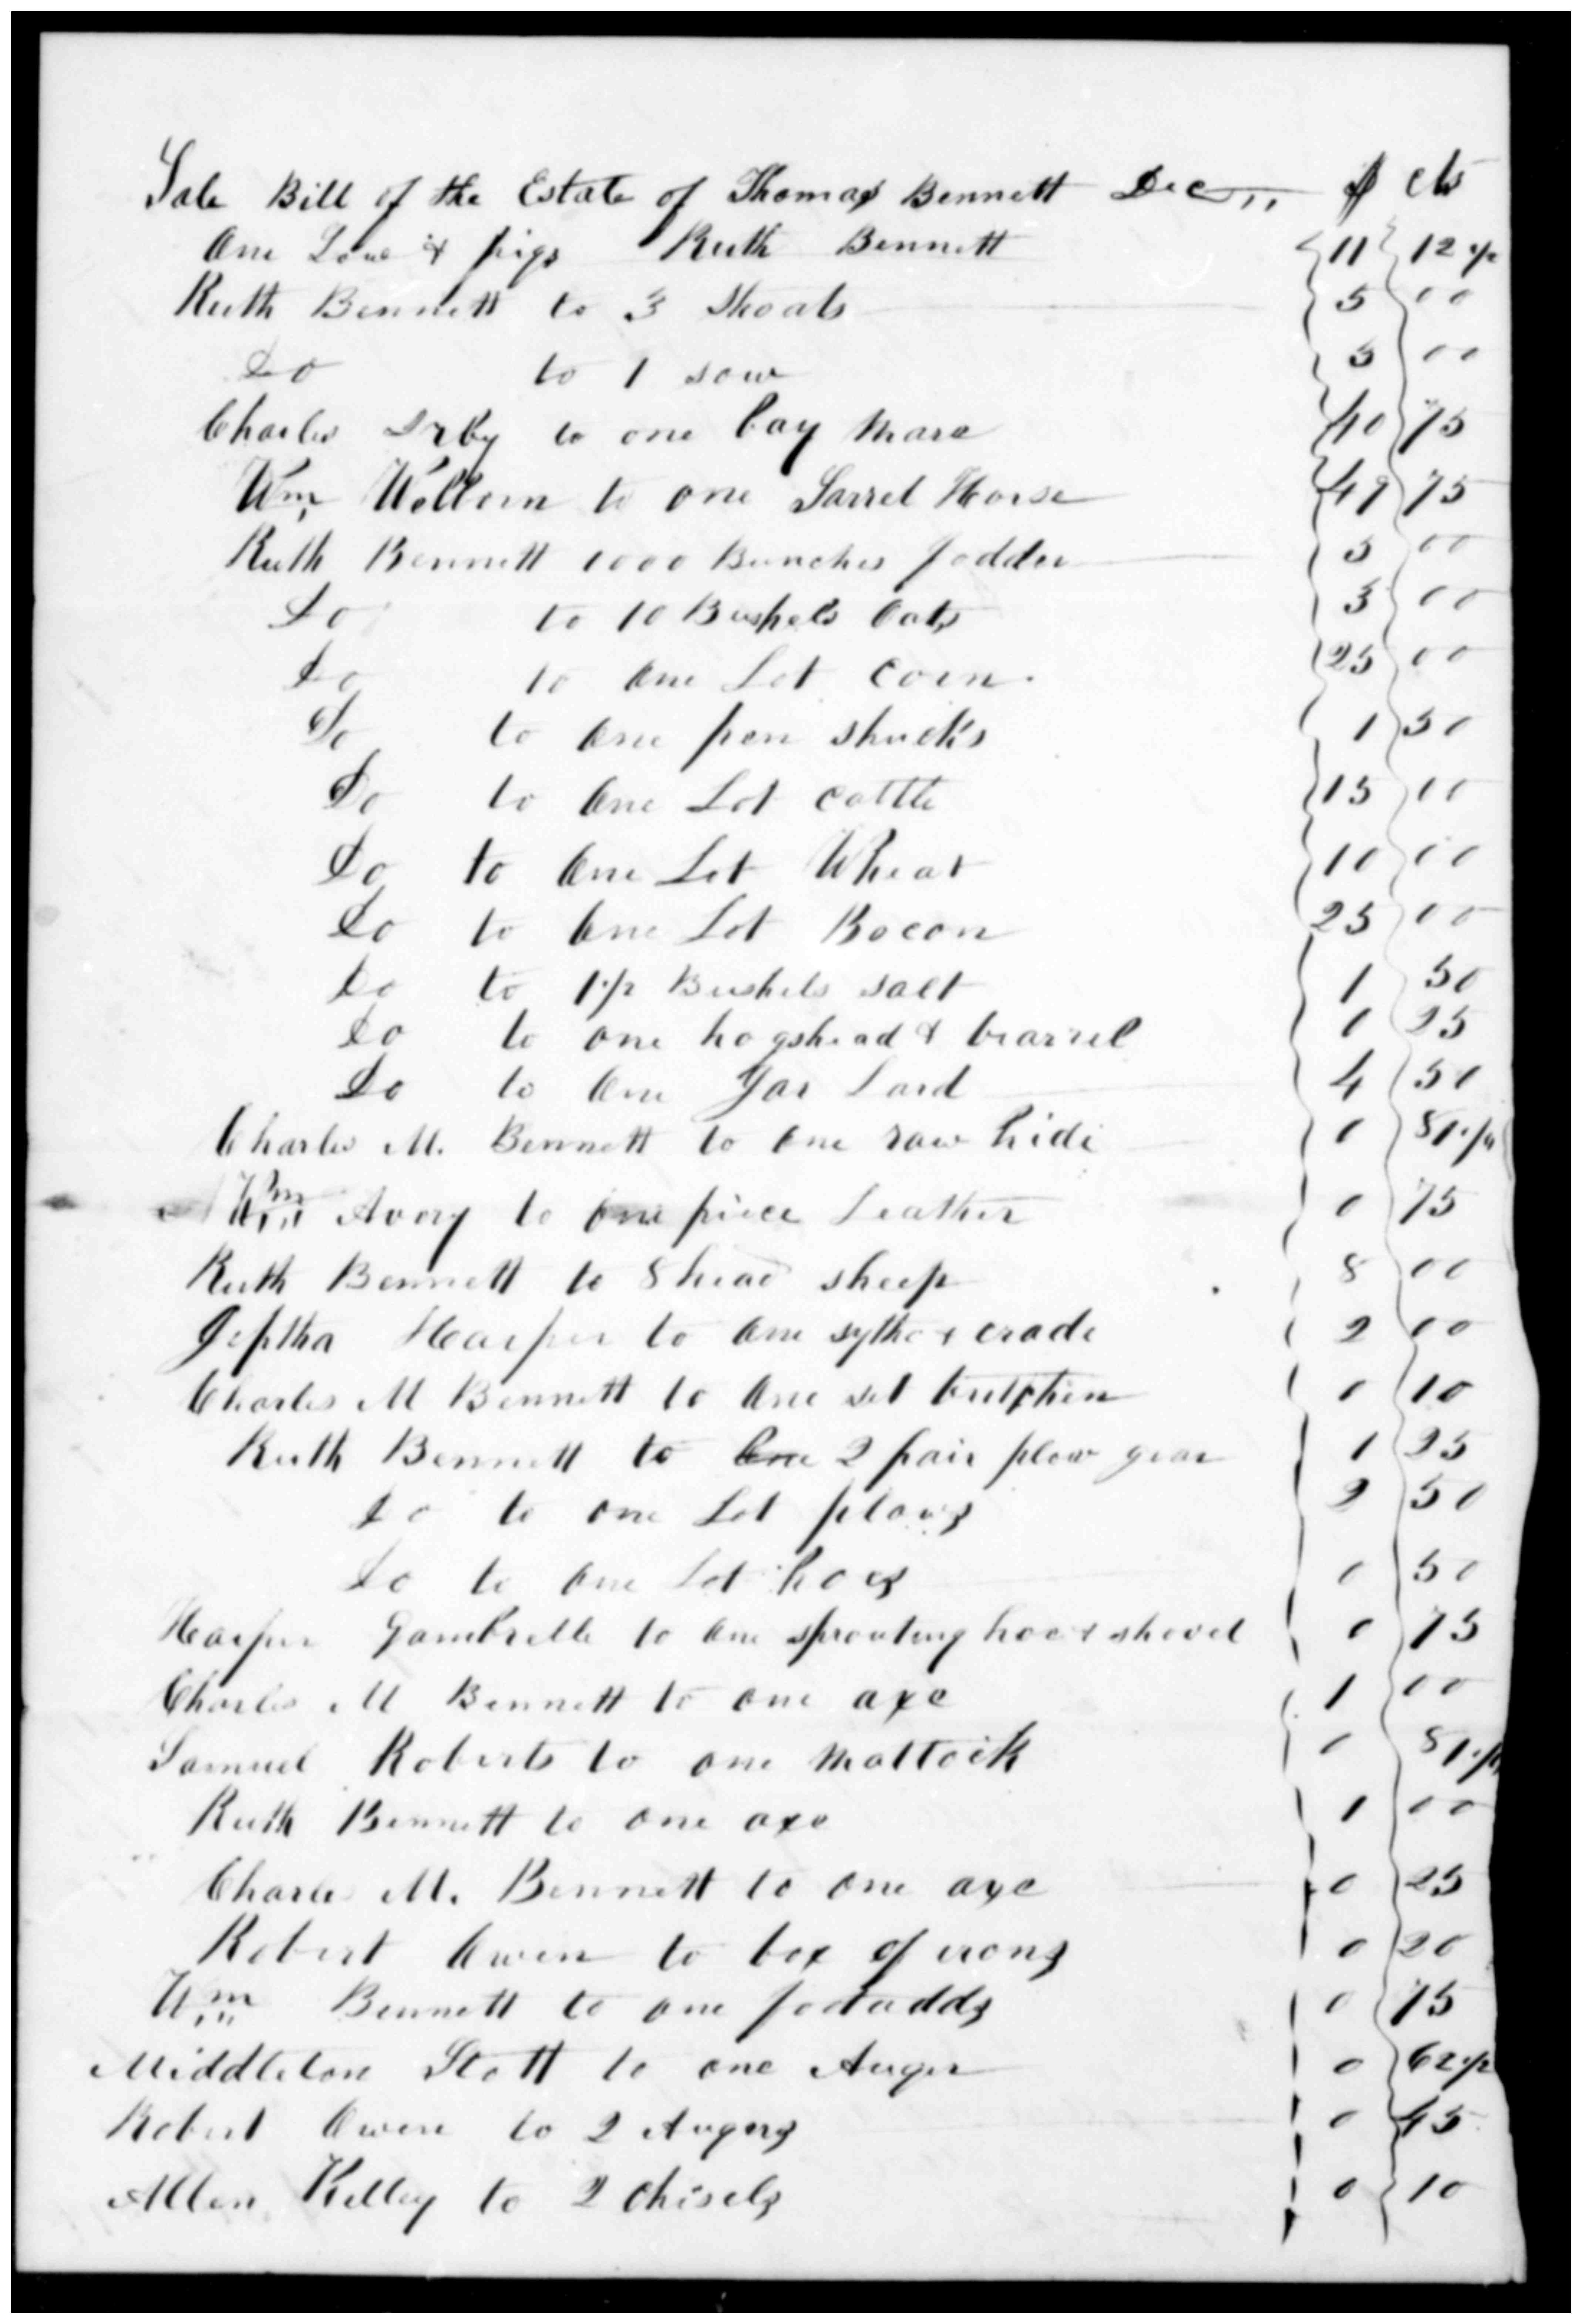 Sale Bill of the Estate of Thomas Bennett Dec,, $ cts
One Sow & pigs Ruth Bennett 11 12 1/2
Ruth Bennett to 3 Shoats 5 00
Do to 1 sow 5 00
Charles Irby to one bay Mare 40 75
Wm Wellorn to one Sarrel Horse 49 75
Ruth Bennett 1000 Bunches fodder 5 00
Do to 10 Bushels Oats 3 00
Do to One Lot corn. 25 00
Do to One pen shucks 1 50
Do to One Lot cattle 15 00
Do to One Lot Wheat 10 00
Do to One Lot Bacon 25 00
Do to 1 1/2 Bushels salt 1 50
Do to one hogshead & barrel 0 25
Do to One Jar Lard 4 50
Charles M. Bennett to One raw hide 0 81 1/4
Wm Avory to One piece Leather 0 75
Ruth Bennett to 8 head sheep 8 00
Jeptha Harper to One sythe & crade 2 00
Charles M Bennett to One set 0 10
Ruth Bennett to One 2 pair plow gear 1 25
Do to one Lot plows 2 50
Do to One Lot hoes 0 50
Harper Gambrelle to One sprouting hoe & shovel 0 75
Charles M Bennett to one axe 1 00
Samuel Roberts to one Mattock 0 81
Ruth Bennett to one axe 1 00
Charles M. Bennett to one axe 0 25
Robert Owen to box of irons 0 20
Wm Bennett to one footadds 0 75
Middleton Stott to one Auger 0 62 1/2
Robert Owen to 2 Augers 0 45
Allen Kelley to 2 Chisels 0 10